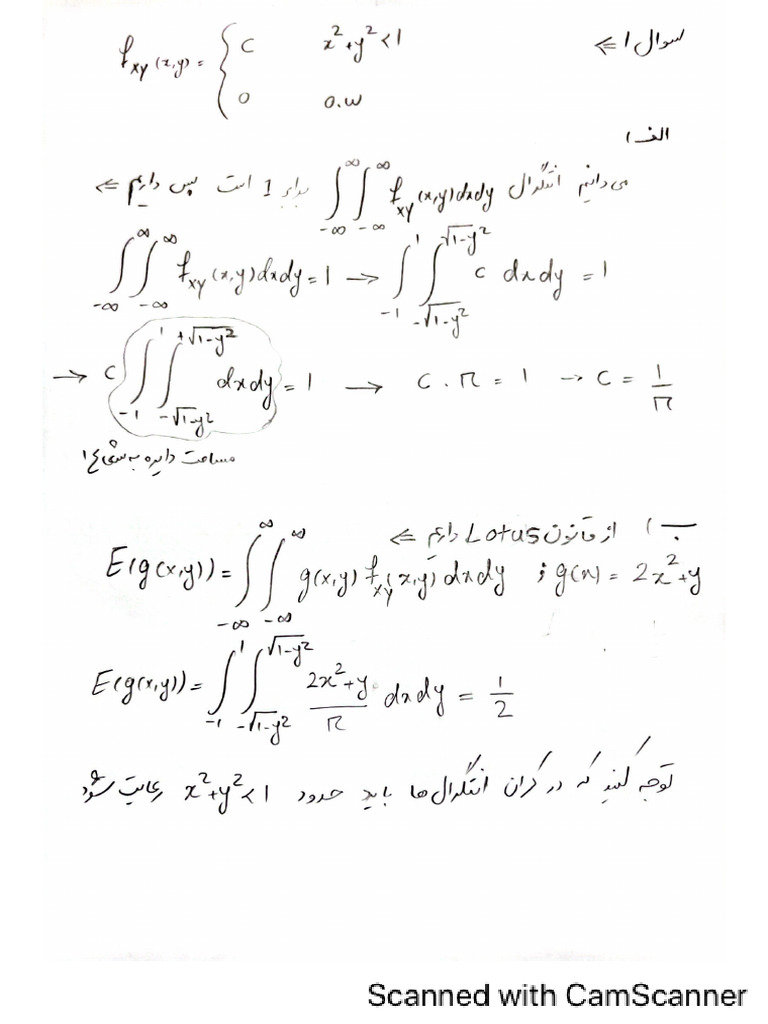 سوال 1 ⇐
f_xy(x,y) = { C    x²+y²<1
0    o.w
الف)
می دانیم انتگرال ∫_{-∞}^{∞} ∫_{-∞}^{∞} f_xy(x,y)dxdy برابر 1 است پس داریم ⇐
∫_{-∞}^{∞} ∫_{-∞}^{∞} f_xy(x,y)dxdy = 1 → ∫_{-1}^{1} ∫_{-√1-y²}^{√1-y²} c dxdy = 1
→ C ∫_{-1}^{1} ∫_{-√1-y²}^{+√1-y²} dxdy = 1 → C . π = 1 → C = 1/π
مساحت دایره به شعاع 1
ب) از قانون Lotus داریم ⇐
E(g(x,y)) = ∫_{-∞}^{∞} ∫_{-∞}^{∞} g(x,y) f_xy(x,y) dxdy ; g(x) = 2x²+y
E(g(x,y)) = ∫_{-1}^{1} ∫_{-√1-y²}^{√1-y²} (2x²+y)/π dxdy = 1/2
توجه کنید که در کران انتگرال ها باید حدود x²+y²<1 رعایت شود
Scanned with CamScanner